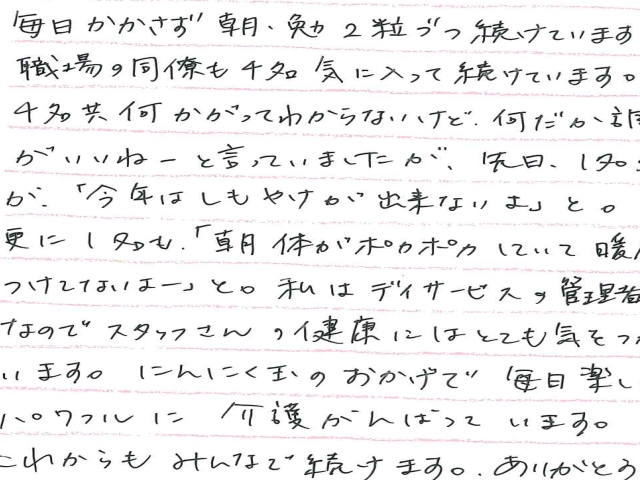 毎日かかさず朝、勉 2粒づつ続けています
職場の同僚も4名気に入って続けています。
4名共何かがってわからないけど、何だか調
がいいねーと言っていましたが、先日、1名
が、「今年はしもやけが出来ないよ」と。
更に1名も、「朝体がポカポカしていて暖
つけてないよー」と。私はデイサービスの管理者
なのでスタッフさんの健康にはとても気をつ
います。にんにく玉のおかげで毎日楽し
パワフルに介護がんばっています。
これからもみんなで続けます。ありがとう